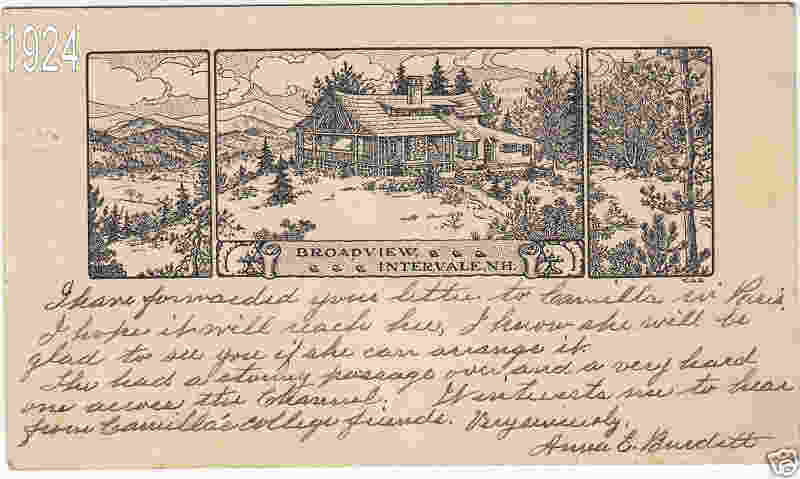 1924
BROADVIEW
INTERVALE, N.H.
I have forwarded your letter to Camilla in Paris.
I hope it will reach her. I know she will be
glad to see you if she can arrange it.
She had a stormy passage over and a very hard
one across the Channel. It interests me to hear
from Camilla's college friends. Very sincerely,
Anna E. Burdett